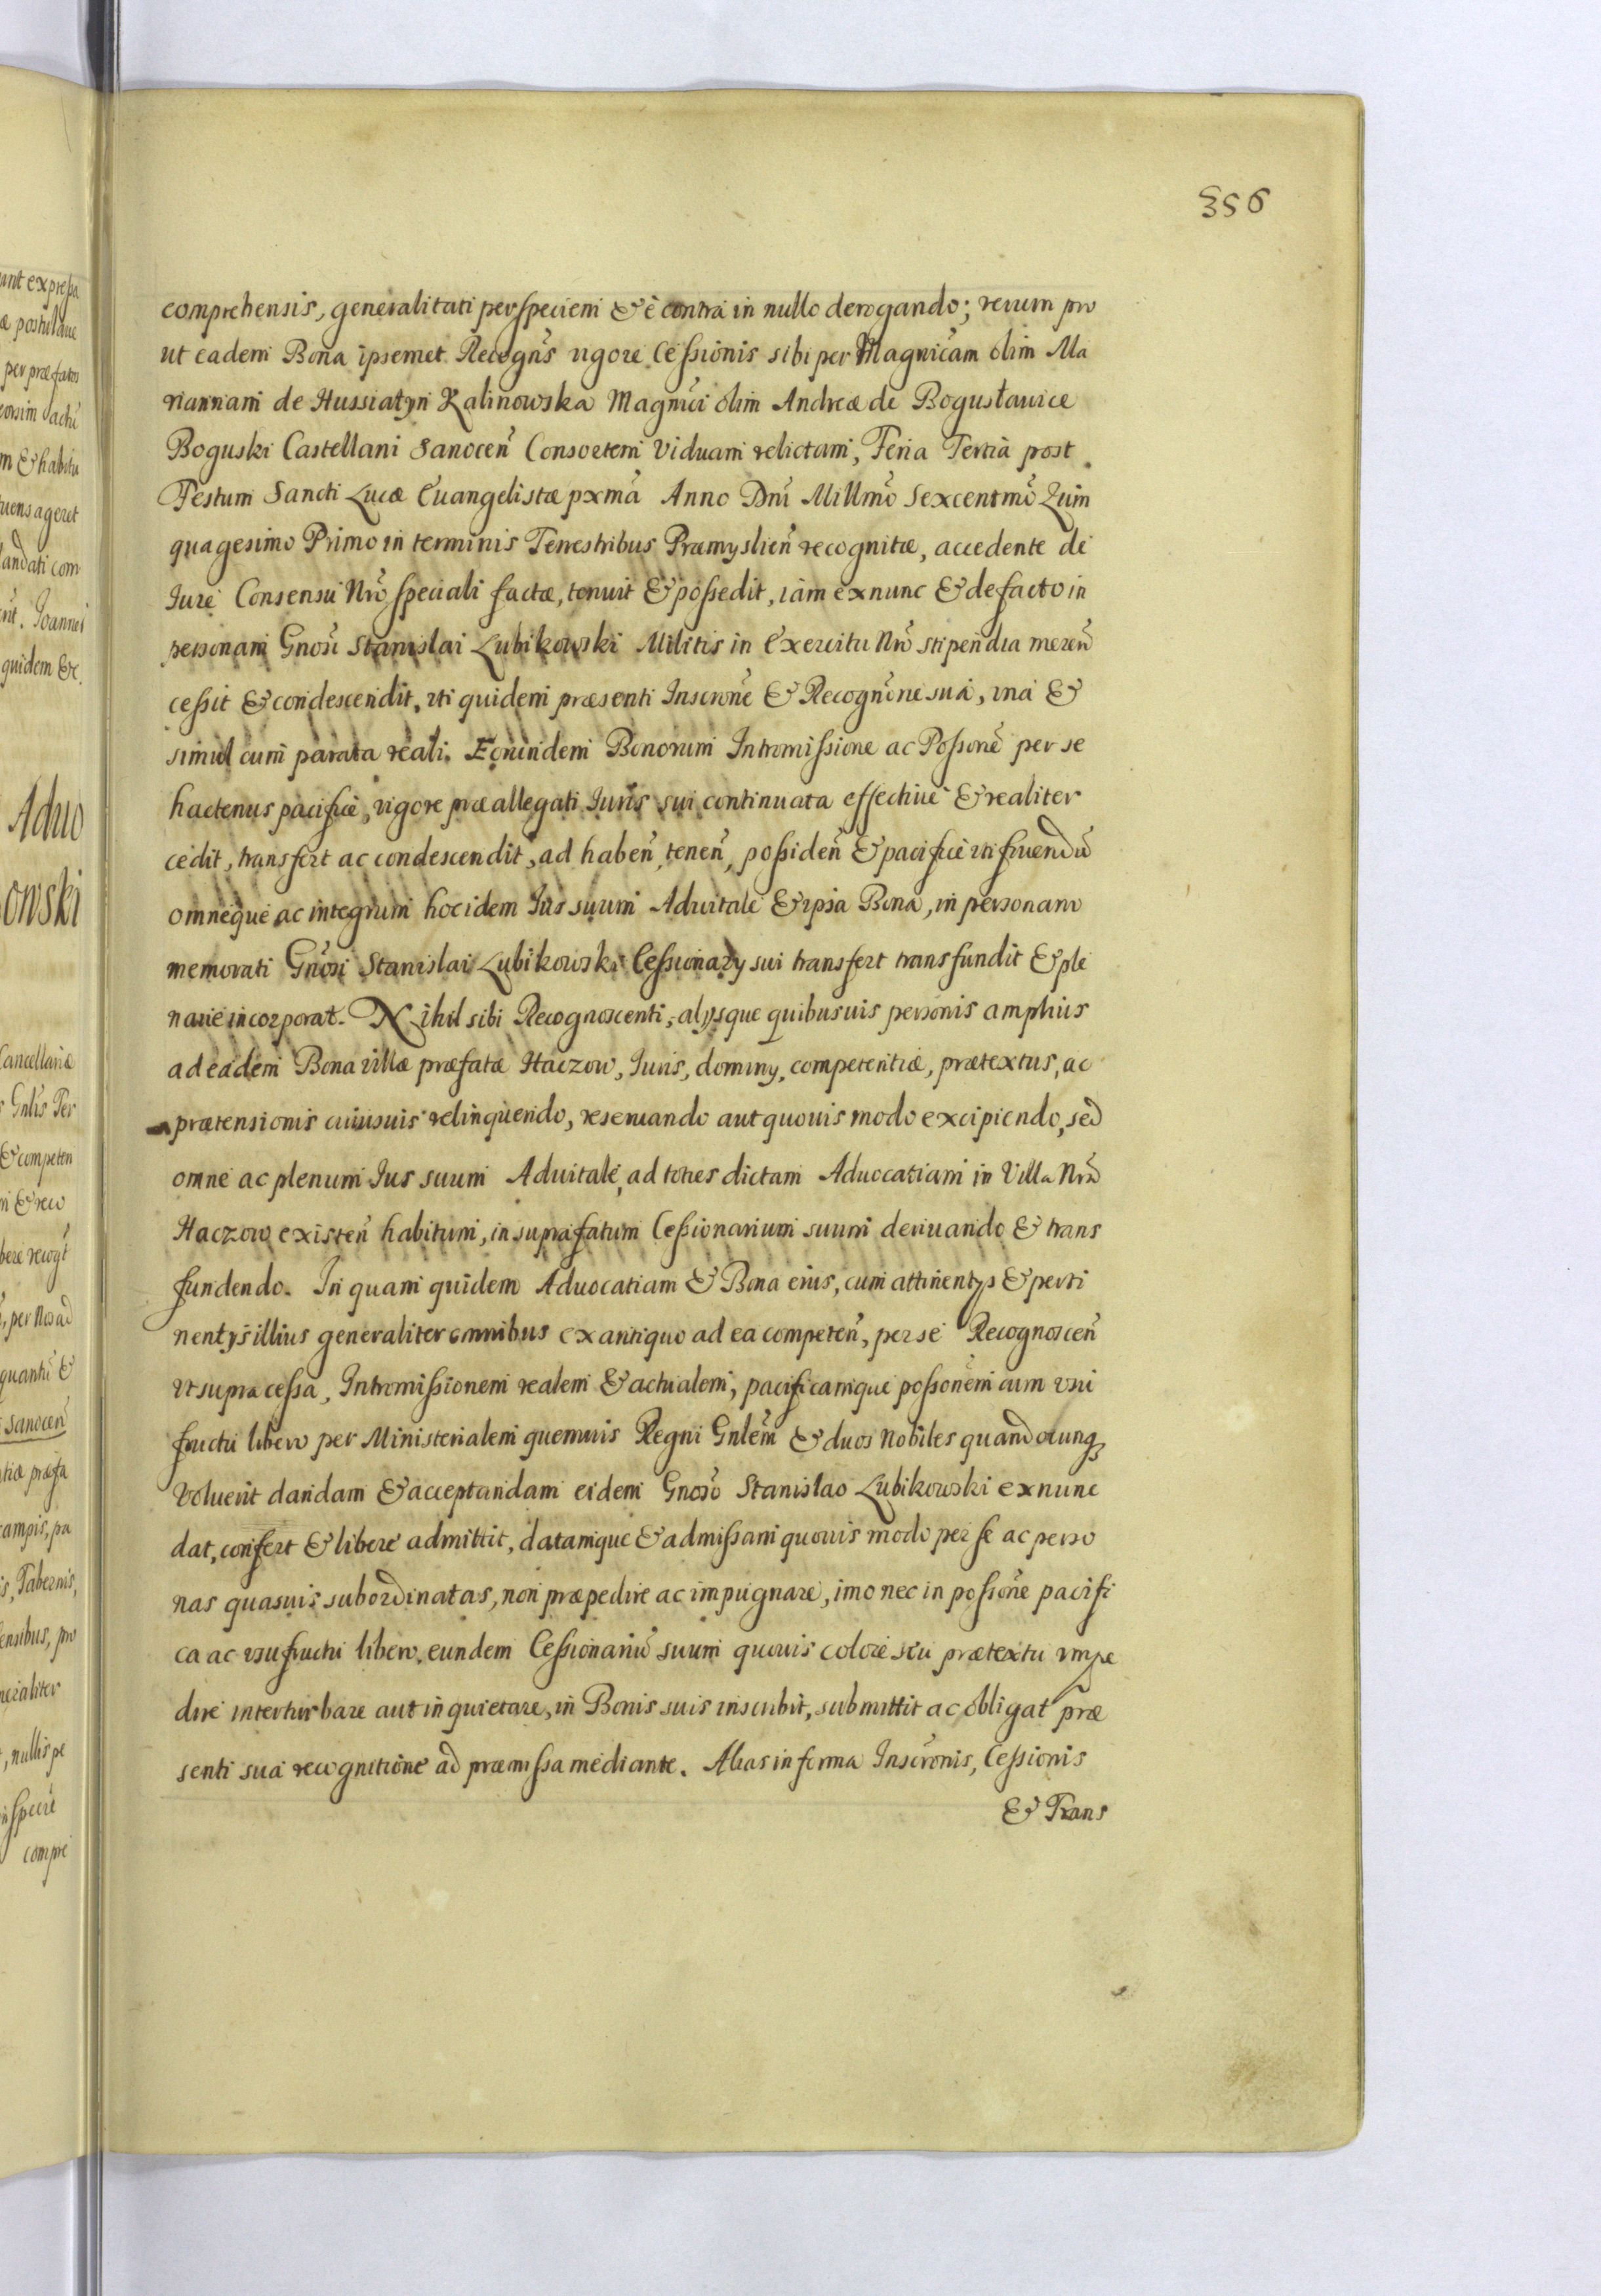 356
comprehensis, generalitati per speciem & è contra in nullo derogando; verum pro
ut eadem Bona ipsemet Recogñs vigore Cessionis sibi per Magnĩcam olim Ma
riannam de Hussiatyn Kalinowska Magnĩci olim Andreæ de Bogusławice
Boguski Castellani Sanoceñ Consortem Viduam relictam, Feria Tertia post
Festum Sancti Lucæ Euangelistæ pxmã Anno Dnĩ Millmõ Sexcentmõ Quin
quagesimo Primo in terminis Terrestribus Præmyslieñ recognitæ, accedente de
Iure Consensu Nrõ speciali factæ, tenuit & possedit, iam exnunc & defacto in
personam Gnosĩ Stanislai Lubikowski Militis in Exercitu Nrõ stipendia mereñ
cessit & condescendit, vti quidem præsenti Inscrõne & Recognõne sua, vna &
simul cum parata reali Eorundem Bonorum Intromissione ac Possonẽ per se
hactenus pacificè, vigore præallegati Iuris sui continuata effectiuè & realiter
cedit, transfert ac condescendit, ad habeñ, teneñ, possideñ & pacificè vtifruendũ
omneque ac integrum hocidem Ius suum Aduitale & ipsa Bona, in personam
memorati Gnosĩ Stanislai Lubikowski Cessionarÿ sui transfert transfundit & ple
narie incorporat. Nihil sibi Recognoscenti, alÿsque quibusuis personis amplius
ad eadem Bona villæ præfatæ Haczow, Iuris, dominÿ, competentiæ, prætextus, ac
prætensionis cuiusuis relinquendo, reseruando aut quouis modo excipiendo, sed
omne ac plenum Ius suum Aduitale, ad toties dictam Aduocatiam in Villa Nrã
Haczow existeñ habitum, in suprafatum Cessionarium suum deriuando & trans
fundendo. In quam quidem Aduocatiam & Bona eius, cum attinentÿs & perti
nentÿs illius generaliter omnibus ex antiquo ad ea competeñ, per se Recognosceñ
vt supra cessa, Intromissionem realem & actualem, pacificamque possonẽm cum vsu
fructu libero per Ministerialem quemuis Regni Gnlẽm & duos Nobiles quandocunq3
Voluerit dandam & acceptandam eidem Gnosõ Stanislao Lubikowski exnunc
dat, confert & libere admittit, datamque & admissam quouis modo per se ac perso
nas quasuis subordinatas, non præpedire ac impugnare, imo nec in possonẽ pacifi
ca ac vsufructu libero, eundem Cessionariũ suum quouis colore seu prætextu impe
dire interturbare aut inquietare, in Bonis suis inscribit, submittit ac obligat præ
senti sua recognitione ad præmissa mediante. Alias in forma Inscrõnis, Cessionis
& Trans